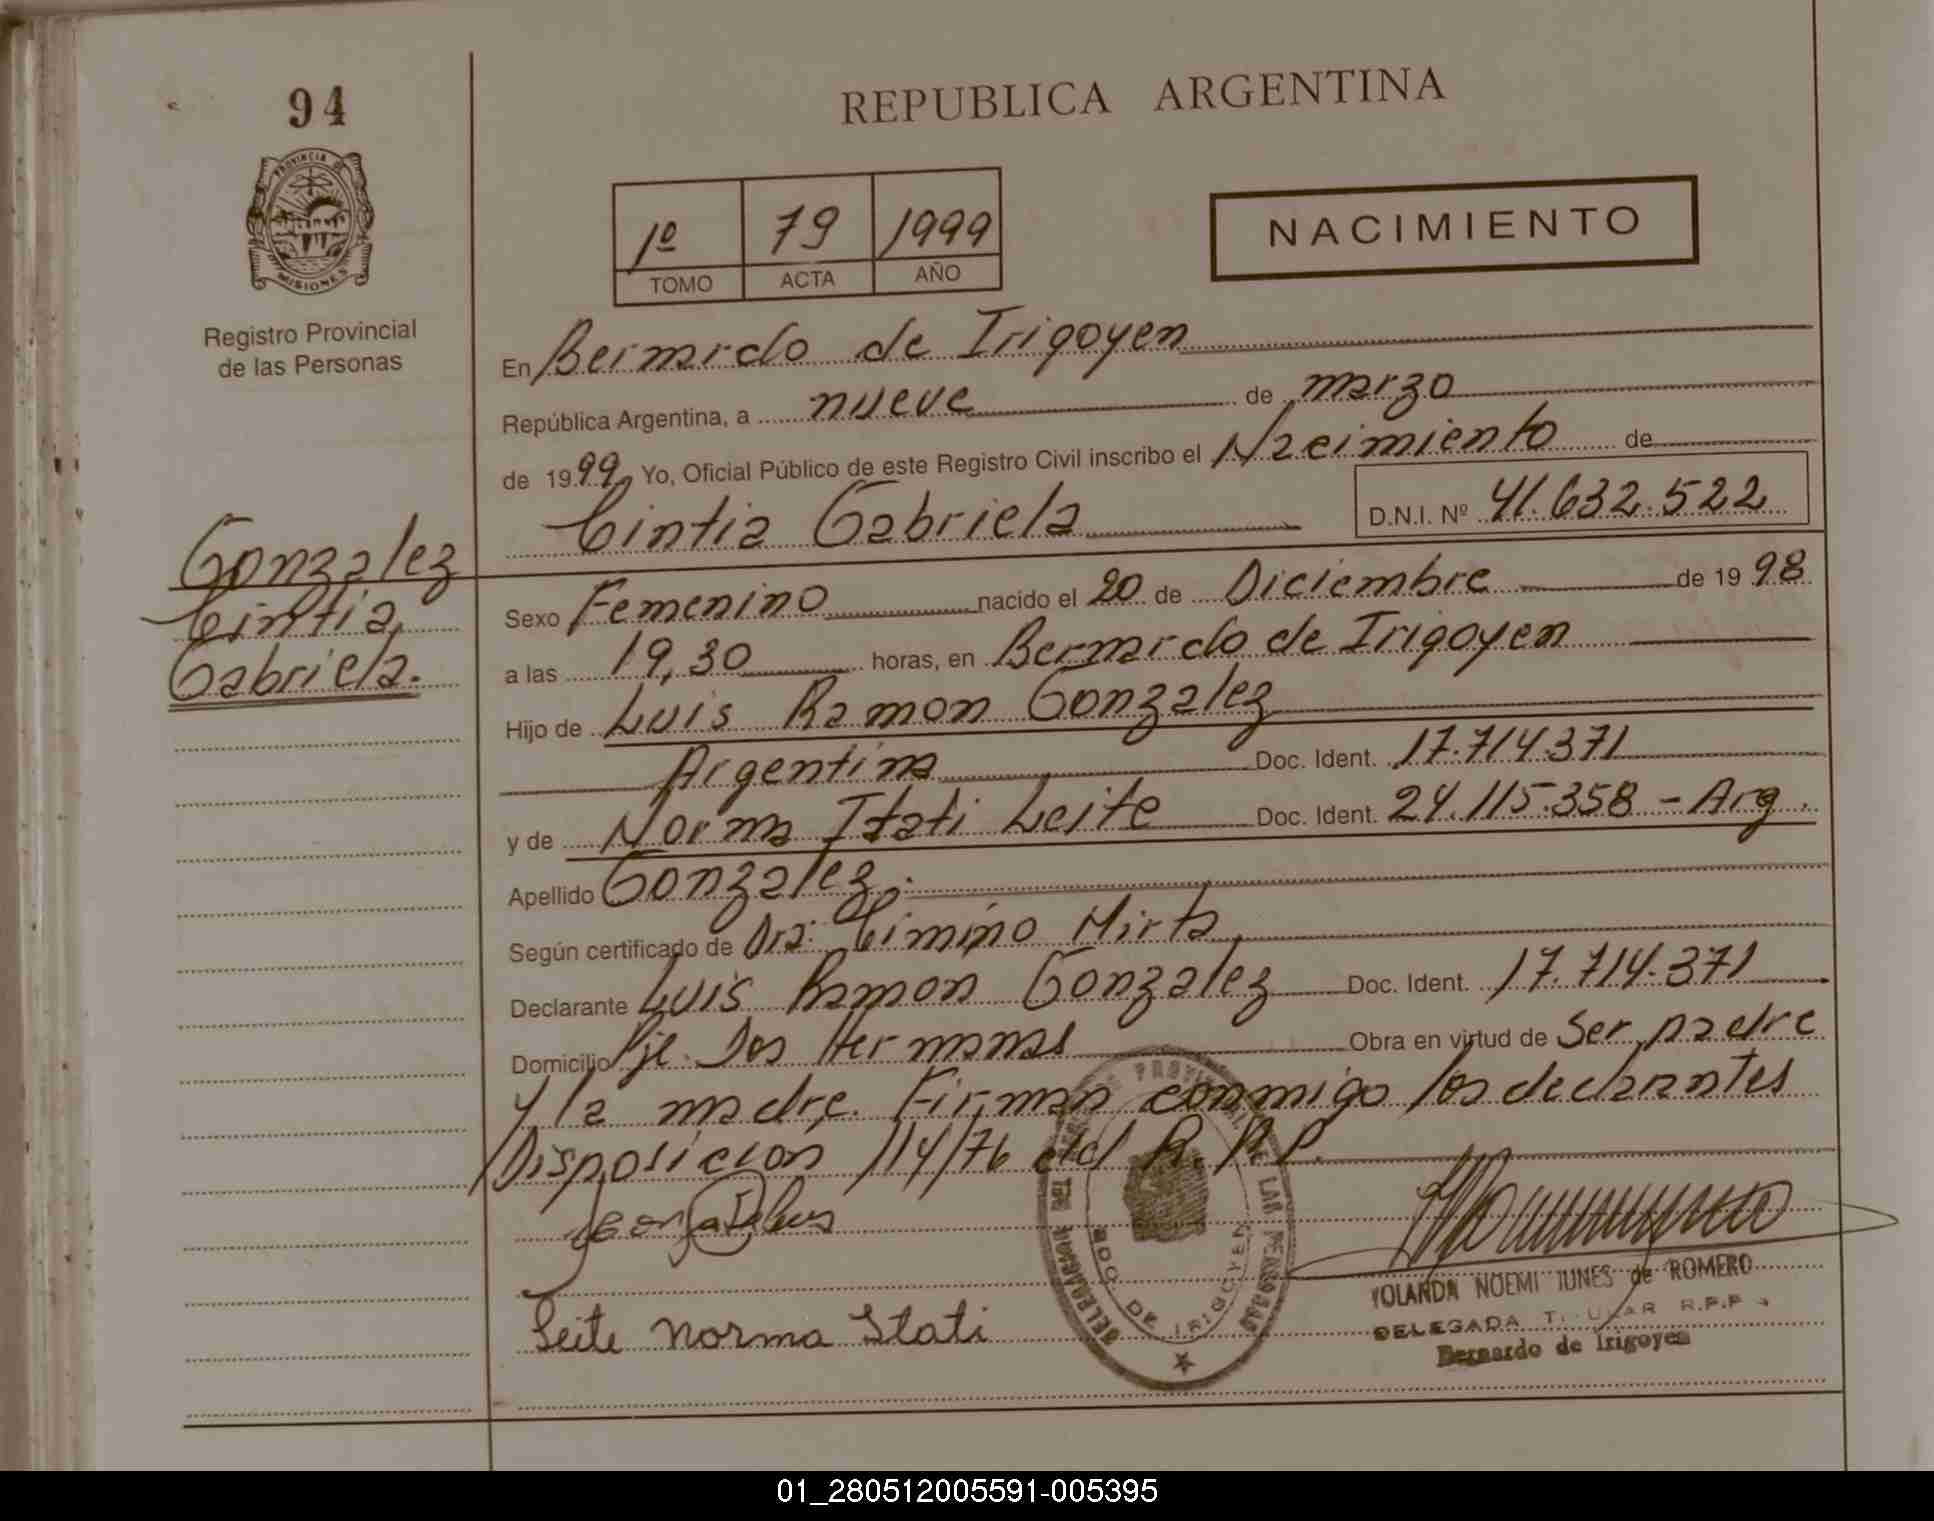 94
REPUBLICA ARGENTINA
PROVINCIA DE MISIONES
Registro Provincial
de las Personas
1º 79 1999
TOMO ACTA AÑO
NACIMIENTO
En Bernardo de Irigoyen
República Argentina, a nueve de marzo
de 1999 Yo, Oficial Público de este Registro Civil inscribo el Nacimiento de
Cintia Gabriela D.N.I. Nº 41.632.522
Gonzalez
Cintia
Gabriela.
Sexo Femenino nacido el 20 de Diciembre de 1998
a las 19,30 horas, en Bernardo de Irigoyen
Hijo de Luis Ramon Gonzalez
Argentina Doc. Ident. 17.714.371
y de Norma Itati Leite Doc. Ident. 24.115.358 - Arg.
Apellido Gonzalez.
Según certificado de Dra: Cimino Mirta
Declarante Luis Ramon Gonzalez Doc. Ident. 17.714.371
Domicilio Pje. Dos Hermanas Obra en virtud de Ser padre
y la madre. Firman conmigo los declarantes
Disposicion 114/76 del R.P.P.
Leite Norma Itati
BDO. DE IRIGOYEN
YOLANDA NOEMI IUNES de ROMERO
DELEGADA TITULAR R.P.P
Bernardo de Irigoyen
01_280512005591-005395